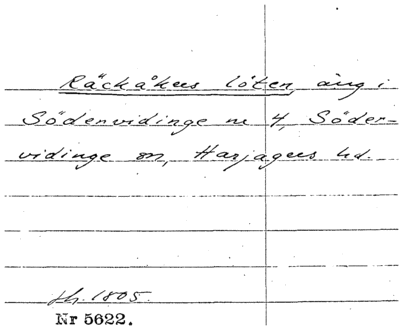 Räckåkers löten, äng i
Södervidinge nr 4, Söder-
vidinge sn, Harjagers hd.
Sh. 1805.
Nr 5622.